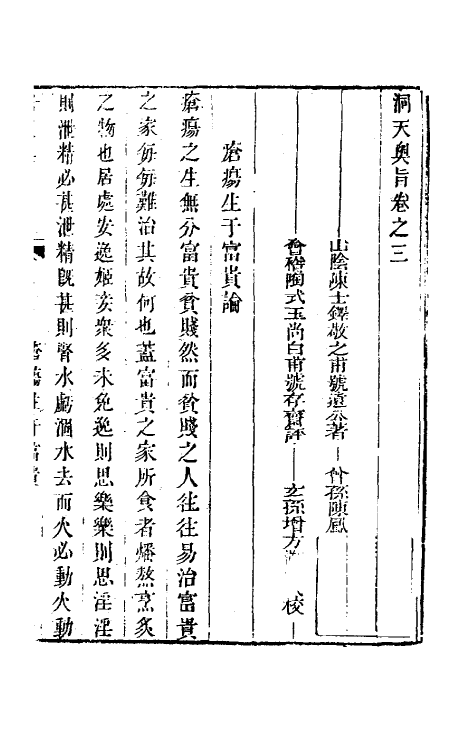 洞天奧旨卷之三
山陰陳士鐸敬之甫號遠公著 曾孫陳鳳
會稽陶式玉尚白甫號存齋評 玄孫增方 校
瘡瘍生于富貴論
瘡瘍之生無分富貴貧賤然而貧賤之人往往易治富貴
之家每每難治其故何也蓋富貴之家所食者燔熬烹炙
之物也居處安逸姬妾衆多未免逸則思樂樂則思淫淫
則泄精必甚泄精既甚則腎水虧涸水去而火必動火動